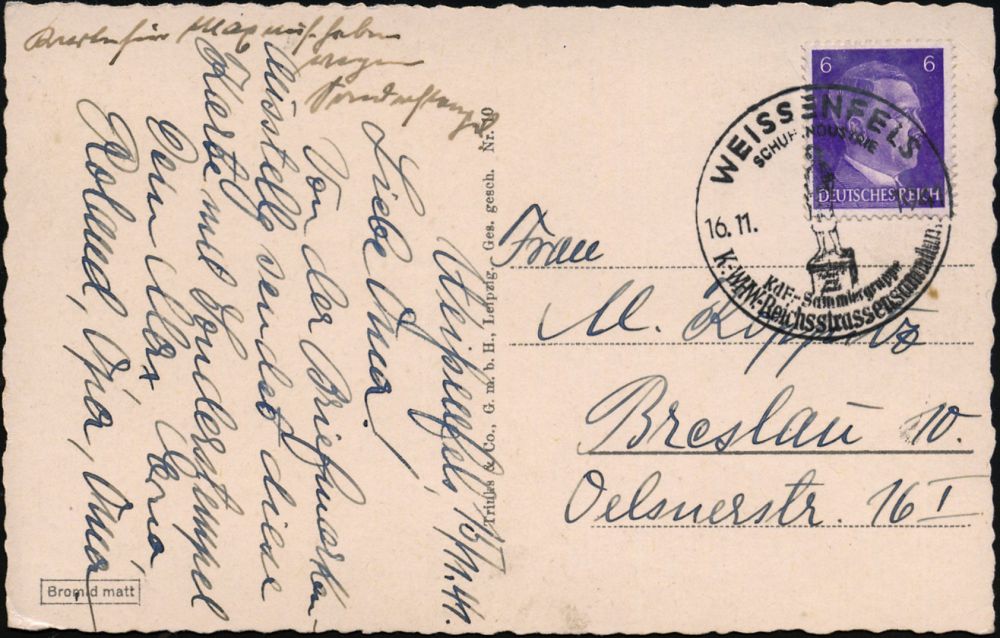 Karte für Max aufheben
wegen
Sonderstempel
Weißenfels, 15/11.41.
Liebe Oma!
Von der Briefmarken-
Ausstellg sendet diese
Karte mit Sonderstempel
Dein Max
Roland, Opa, Oma
Trinks & Co., G. m. b. H., Leipzig. Ges. gesch. Nr.
Bromid matt
6 6
DEUTSCHES REICH
WEISSENFELS
SCHUHINDUSTRIE
16.11.
KdF.-Sammlergruppe
K.-WHW.-Reichsstrassensammlun.
Frau
M.
Breslau 10.
Oelsnerstr. 16 I